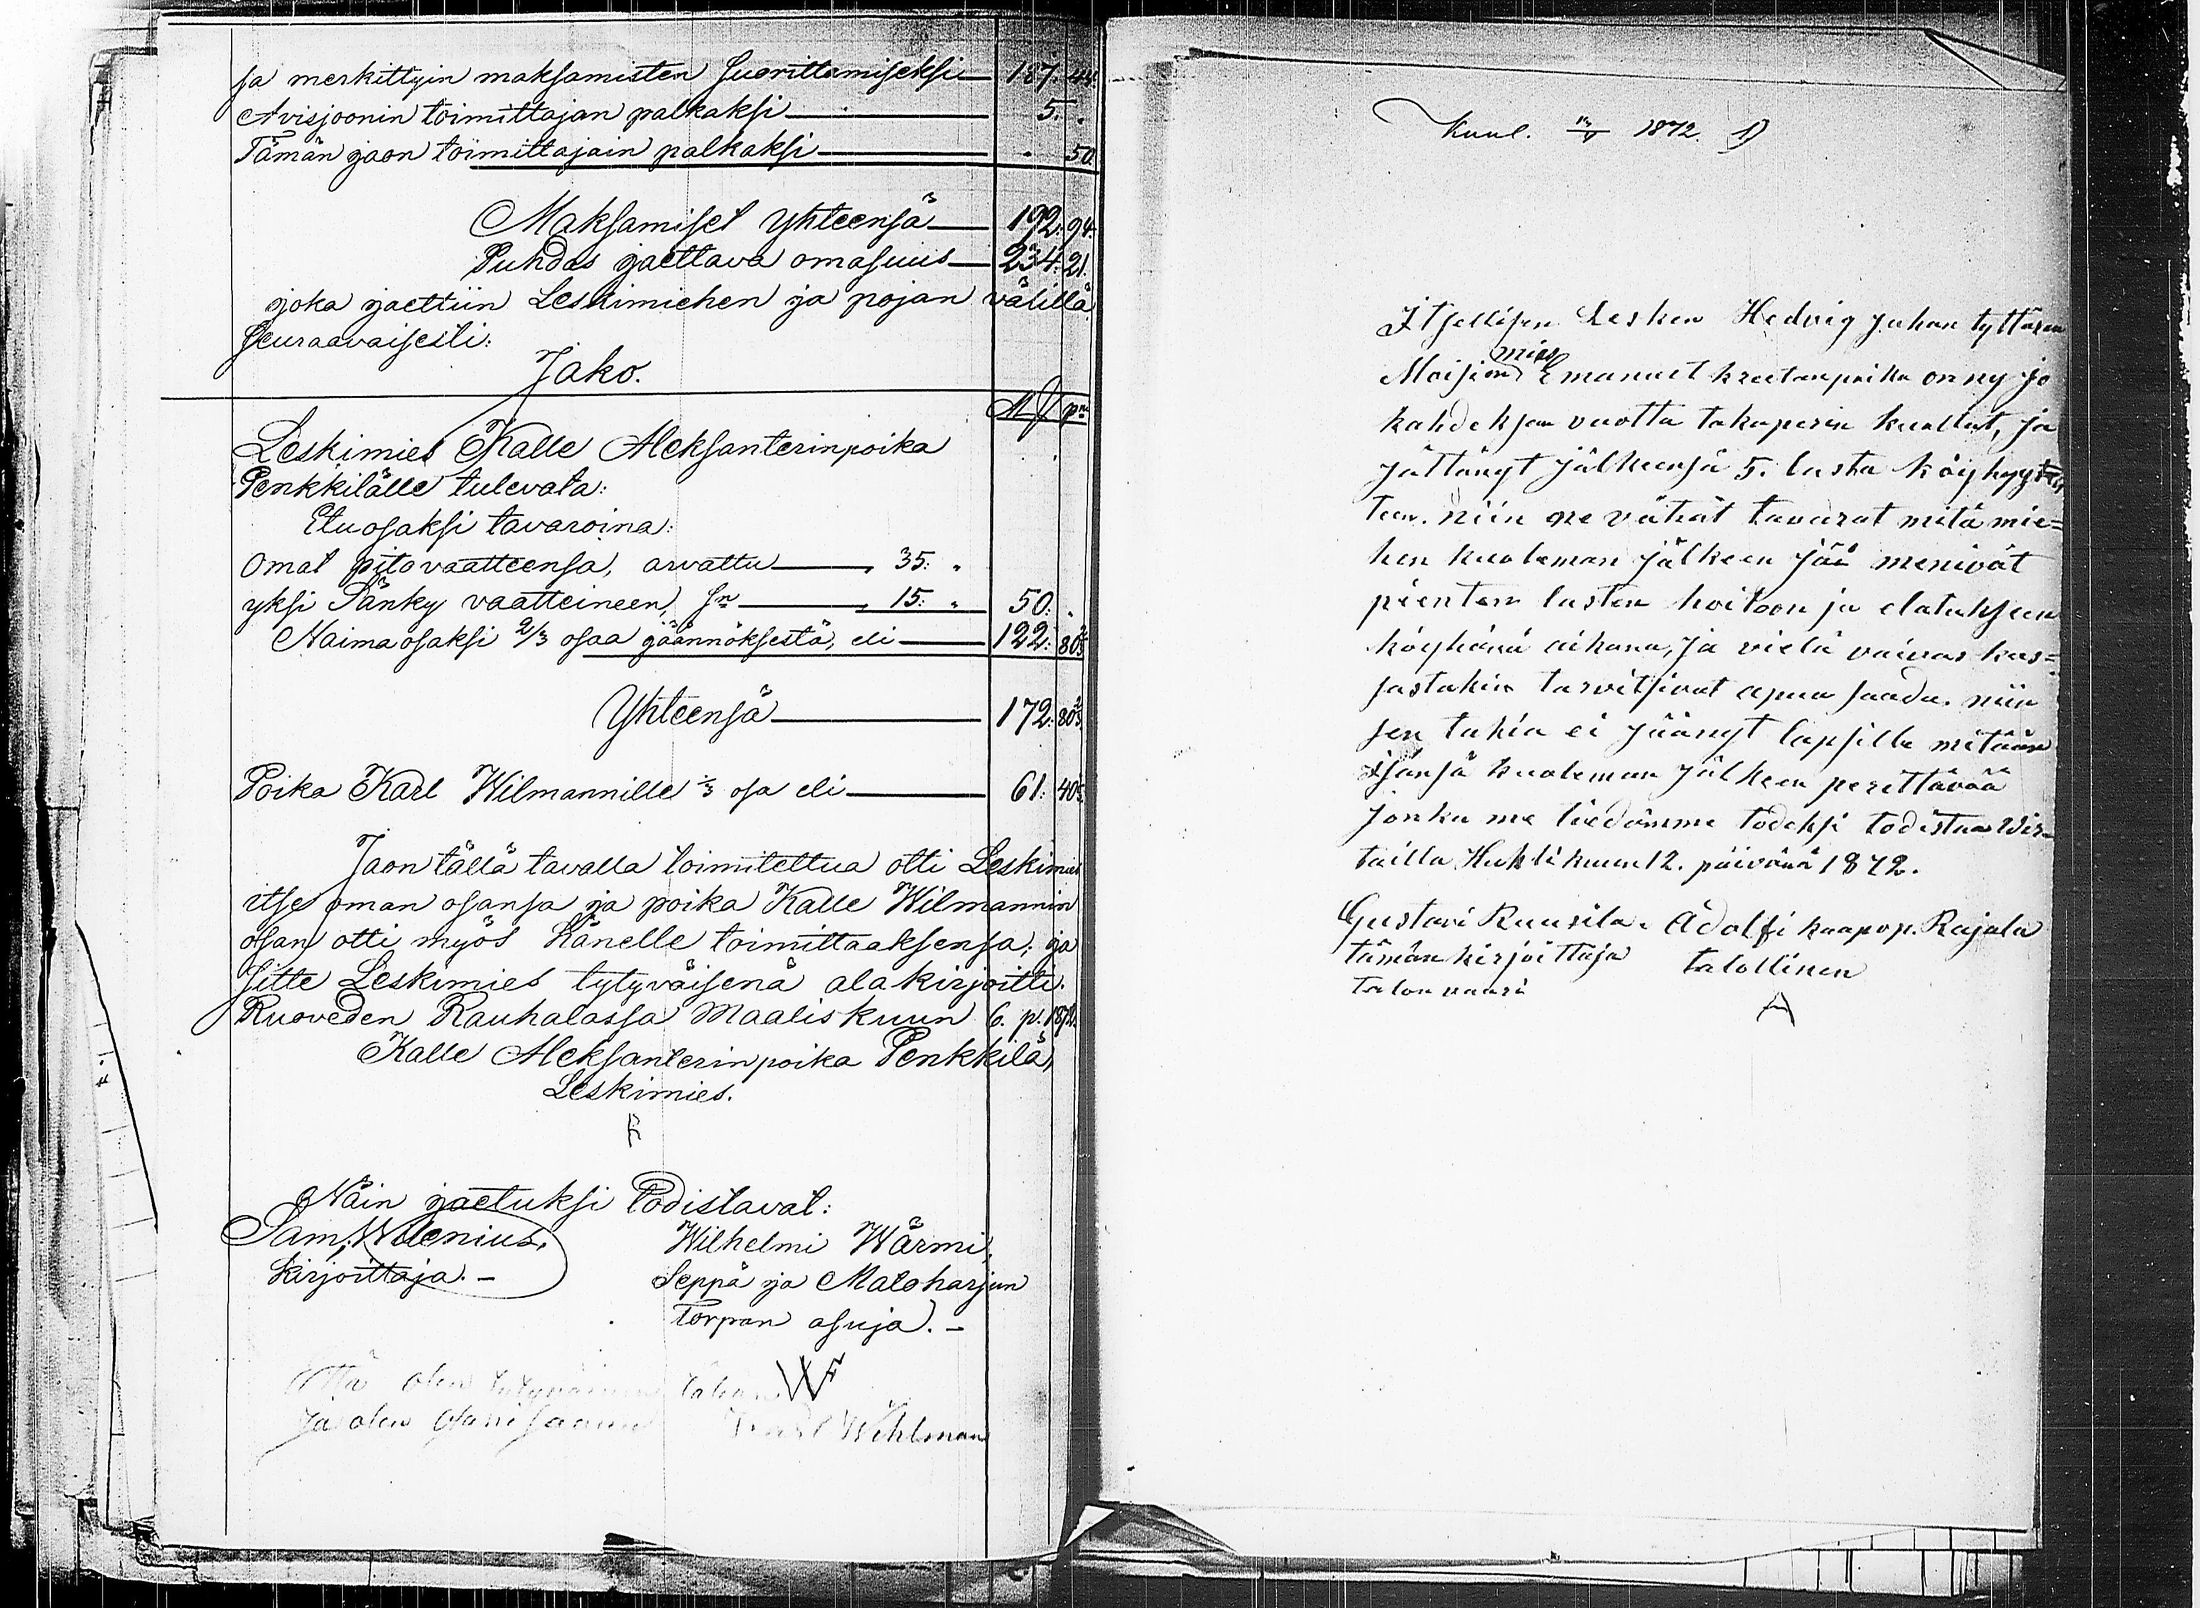 sa merkittyin maksamisten suorittamiseksi — 187. 44.
Avisjoonin toimittajan palkaksi — 5. .
Tämän jaon toimittajain palkaksi — . 50.
Maksamiset Yhteensä — 192. 94.
Puhdas jaettava omasuus — 234. 21.
joka jaettiin Leskimiehen ja pojan välillä
seuraavaisesti:
Jako.
Mf pn
Leskimies Kalle Aleksanterinpoika
Penkkilälle tulevata:
Etuosaksi tavaroina:
Omat pitovaatteensa, arvattu — 35. "
yksi Sänky vaatteineen, sn — 15. " 50. .
Naima osaksi 2/3 osaa jäännöksestä, eli — 122. 80 2/3
Yhteensä — 172. 80 2/3
Poika Karl Wilmannille 1/3 osa eli — 61. 40 1/3
Jaon tällä tavalla toimitettua otti Leskimies
itse oman osansa ja poika Kalle Wilmannin
osan otti myös hänelle toimittaaksensa; ja
sitte Leskimies tytyväisenä ala kirjoitti.
Ruoveden Rauhalassa Maaliskuun 6. p. 1872.
Kalle Aleksanterinpoika Penkkilä,
Leskimies.
Näin jaetuksi todistavat:
Sam. Wilenius,
kirjoittaja. –
Wilhelmi Wärmi,
Seppä ja Mataharjun
torpan asuja. –
että olen tytyväinen tähän
ja olen Osani saanut Karl Wihlman
Kuul. 1872. 1)
Itsellisen Lesken Hedvig Juhan tyttären
mies
Moision Emanuel on ny jo
kahdeksan vuotta takaperin kuollut, ja
jättänyt jälkeensä 5. lasta köyhyy
teen. niin ne vähät tavarat mitä mie=
hen kuoleman jälkeen jäi menivät
pienten lasten hoitoon ja elatukseen
köyhänä aikana, ja vielä vaivas kas=
sastakin tarvitsivat apua saada. niin
sen tähden ei jäänyt lapsille mitään
isänsä kuoleman jälkeen perittävää
jonka me tiedämme todeksi todistaa Wir=
tailla Huhtikuun 12. päivänä 1872.
Gustavi Ruusila. Adolfi kaapop. Rajala
tämän kirjoittaja talollinen
talon vaari
A